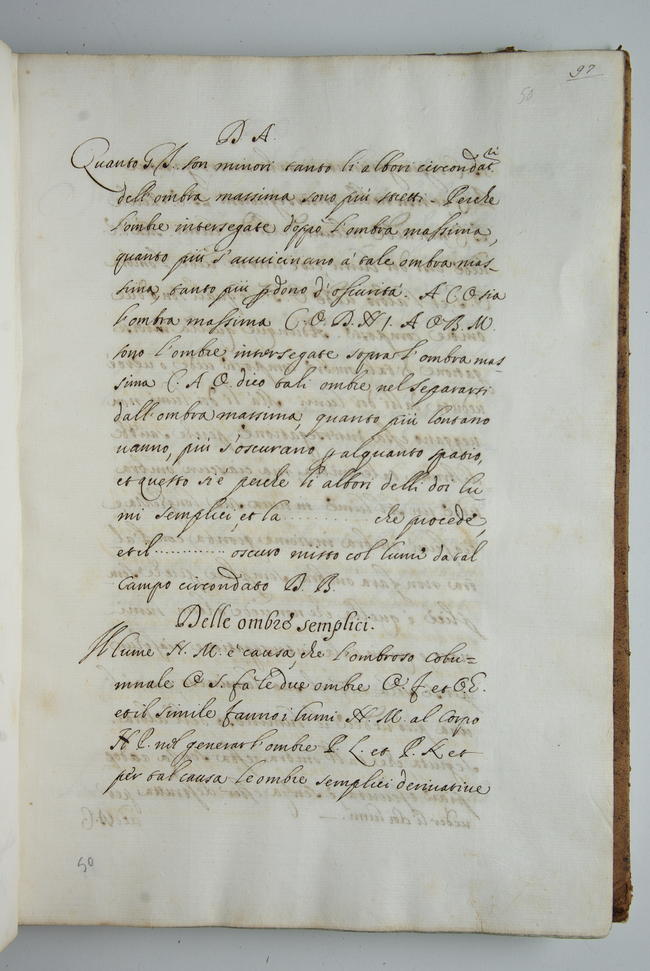 97
50
D A.
Quanto S. S. son minori tanto li albori circondati
dell'ombra massima sono più stretti. Perche
l'ombre intersegate doppo l'ombra massima,
quanto più s'auuicinano à tale ombra mas-
sima tanto più pdono d'oscurità. A C O sia
l'ombra massima C. O. B. N I. A O B. M.
sono l'ombre intersegate sopra l'ombra mas-
sima C. A O. dico tali ombre nel separarsi
dall'ombra massima, quanto più lontano
uanno, più s'oscurano p alquanto spatio,
et questo si è perche li albori delli doi lu-
mi semplici, et la ........... che procede,
et il ............ oscuro misto col lume da tal
campo circondato B. B.
Delle ombre semplici.
Il lume N. M. è causa, che l'ombroso colu=
mnale O S. fa le due ombre O. f et O E.
et il simile fanno i lumi N. M. al corpo
N P. nel generar l'ombre P. L. et P. K et
per tal causa le ombre semplici deriuatiue
50